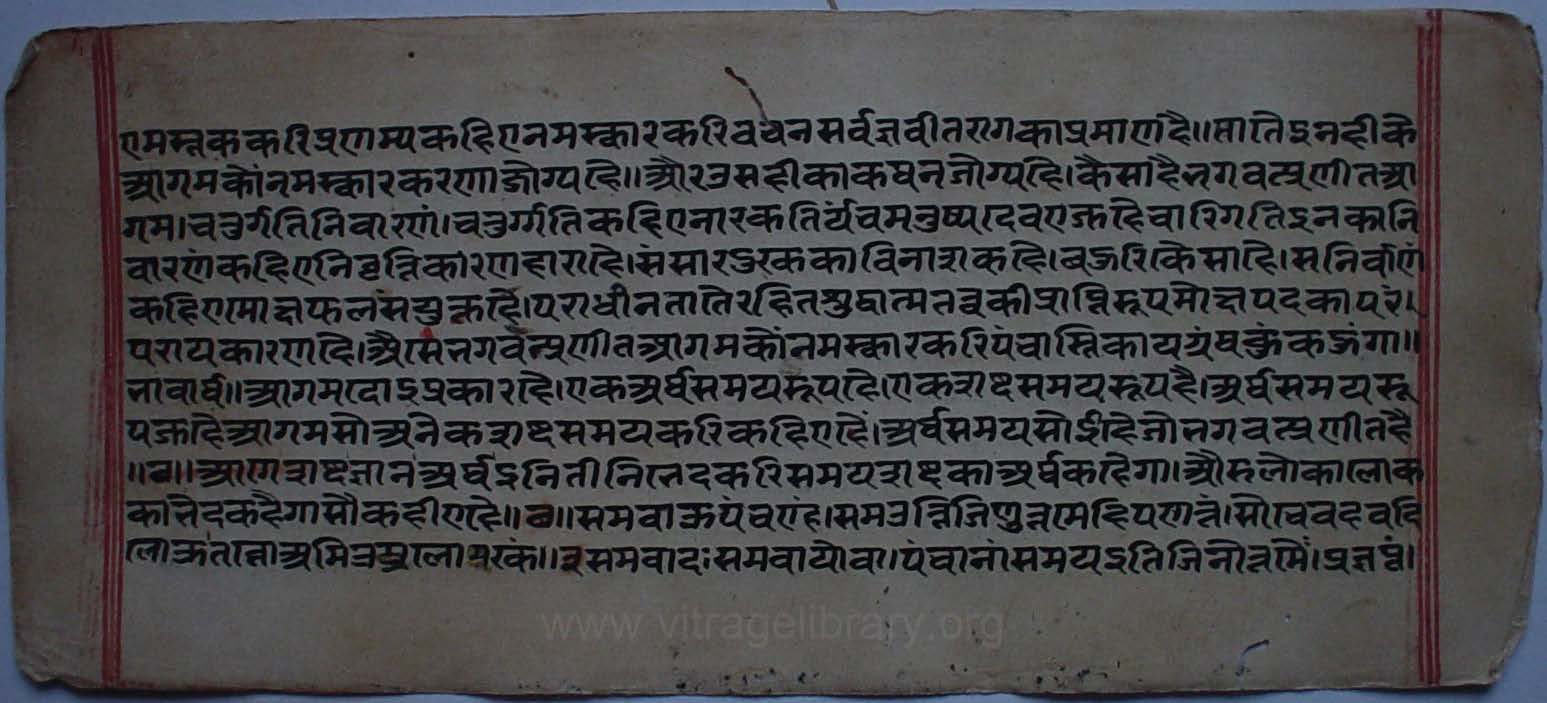 एमस्तककरिप्रणम्यकहिएनमस्कारकरिवचनसर्वज्ञवीतरागकाप्रमाणहै॥तातेइनहीके
आगमकौंनमस्कारकरणाजोग्यहै॥औरउसहीकाकथनजोग्यहि।कैसाहैभगवत्प्रणीतआ
गम।चउर्गतिनिवारणं।चउर्ग्गतिकहिएनारकतिर्यंचमनुष्यदेवएजहैचारिगतिइनकानि
वारणंकहिएनिवृत्तिकारणहाराहै।संसारदुरककाविनाशकहै।बज़रिकैसाहै।सनिर्वाणं
कहिएमोक्षफलसंयुक्तहै।पराधीनतातेरहितशुद्धात्मतत्वकीप्राप्तिरूपमोक्षपदकापरं।
परायकारणहै।असेभगवंत्प्रणीतआगमकौंनमस्कारकरिपंचास्तिकायग्रंथकुंकहूंगा॥
भावार्थ॥आगमदोइप्रकारहै।एकअर्थसमयरूपहै।एकशब्दसमयरूपहै।अर्थसमयरू
पजोहैआगमसोअनेकशब्दसमयकरिकहिएहै।अर्थसमयसोईहैजोभगवत्प्रणीतहै
॥छ॥आगेशब्दज्ञानअर्थइनितीनिभेदकरिसमयशब्दकाअर्थकहैगा।औरुलोकालोक
काभेदकहैगासौकहीएहै॥छ॥समवाऊपंचण्हं।समउत्तिजिणुत्तमेहिपणत्तं।सोचेवहवदि
लोऊतात्तोअमिउअलोअरकं॥३समवादःसमवायोवा॥पंचानांसमयइतिजिनोत्तमैं।प्रज्ञप्तं।
www.vitragelibrary.org